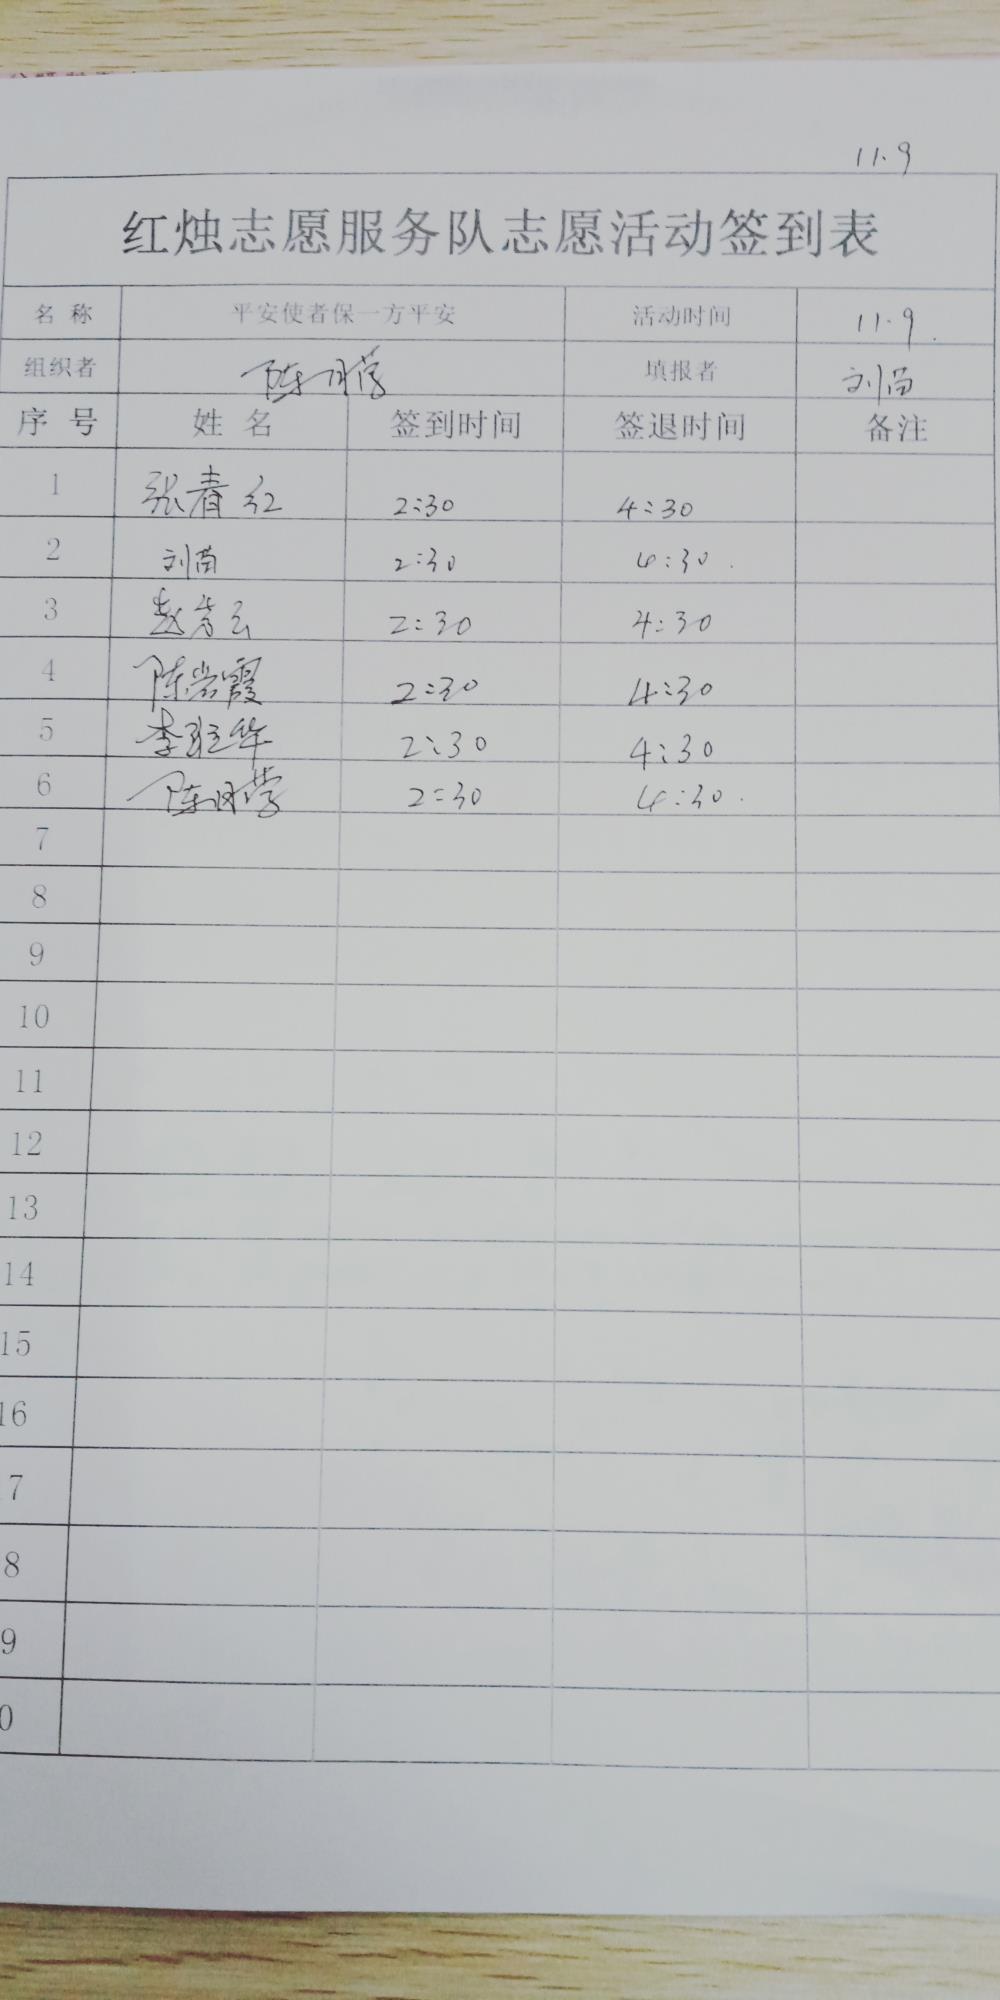 11.9
红烛志愿服务队志愿活动签到表
名 称 平安使者保一方平安 活动时间 11.9.
组织者 陈月莹 填报者 刘苗
序 号 姓 名 签到时间 签退时间 备注
1 张春红 2:30 4:30
2 刘苗 2:30 4:30.
3 赵芳云 2:30 4:30
4 陈岩霞 2:30 4:30
5 李 华 2:30 4:30
6 陈月莹 2:30 4:30.
7
8
9
10
11
12
13
14
15
16
7
8
9
0